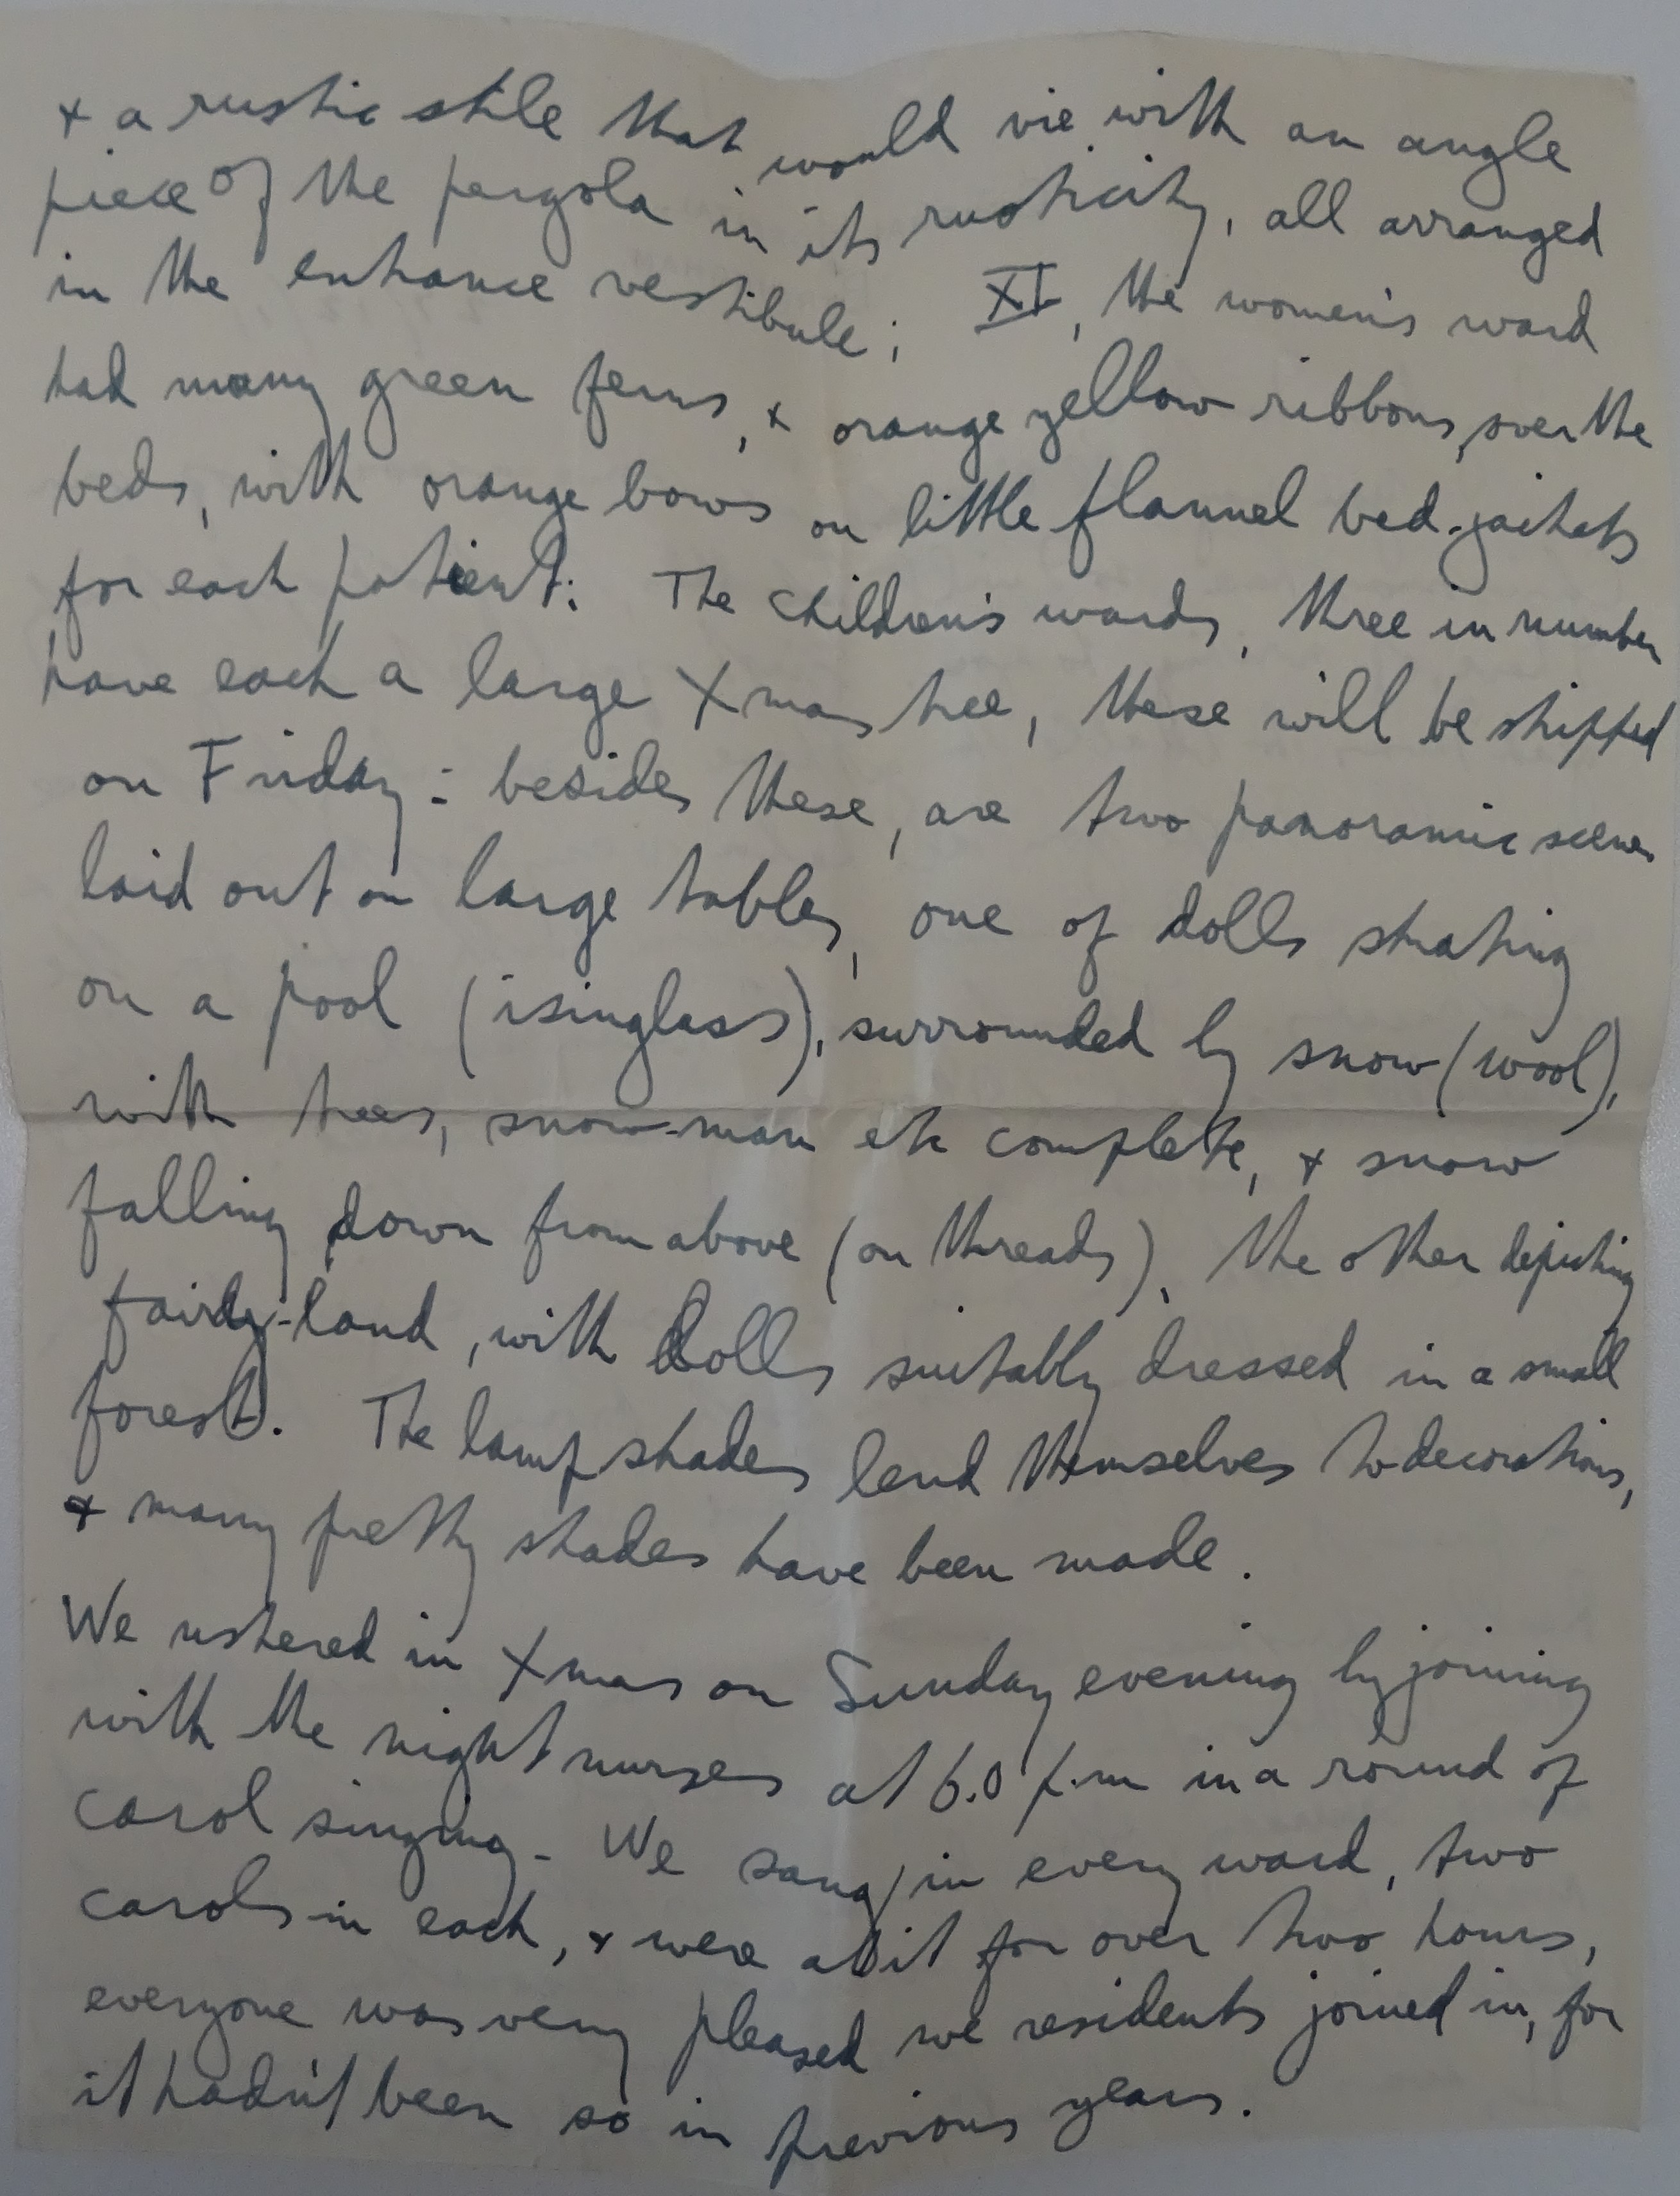 + a rustic stile that would vie with an angle
piece of the pergola in its rusticity, all arranged
in the entrance vestibule; XI, the women's ward
had many green ferns, + orange yellow ribbons, over the
beds, with orange bows on little flannel bed-jackets
for each patient: The children's wards, three in number
have each a large Xmas tree, these will be stripped
on Friday: besides these, are two panoramic scenes
laid out on large tables, one of dolls skating
on a pool (isinglass), surrounded by snow (wool),
with trees, snow-man etc complete, + snow
falling down from above (on threads), the other depicting
fairdy-land, with dolls suitably dressed in a small
forest. The lamp shades lend themselves to decorations,
+ many pretty shades have been made.
We ushered in Xmas on Sunday evening by joining
with the night nurses at 6.0 p.m in a round of
carol singing - We sang in every ward, two
carols in each, + were at it for over two hours,
everyone was very pleased we residents joined in, for
it hadn't been so in previous years.